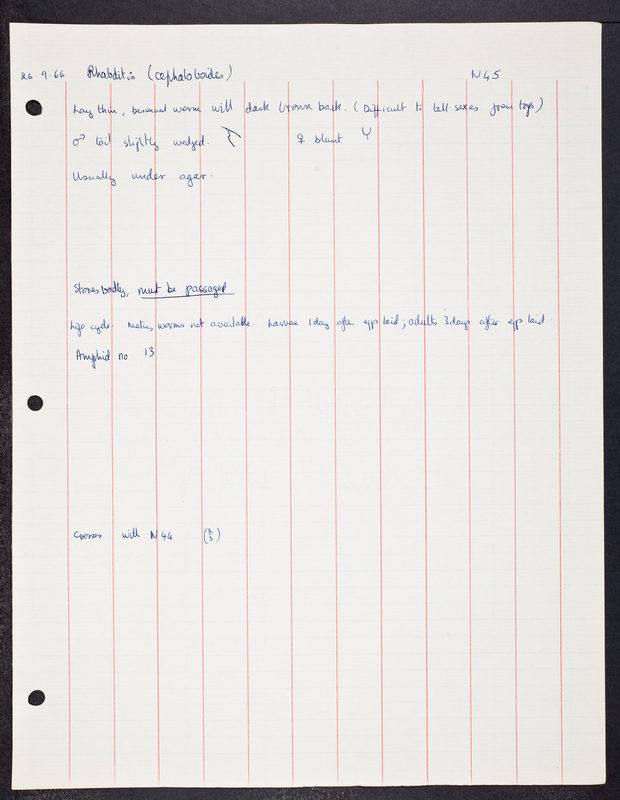 26.9.66. Rhabditis (cephaloboides) N45
Long thin, bisexual worm with dark brown back. (Difficult to tell sexes from tops)
♂ tail slightly wedged. ♀ blunt
Usually under agar.
Stores badly, must be passaged
Life cycle. Mating worms not available. Larvae 1 day after eggs laid, adults 3 days after eggs laid.
Amphid no 13
Crosses with N44